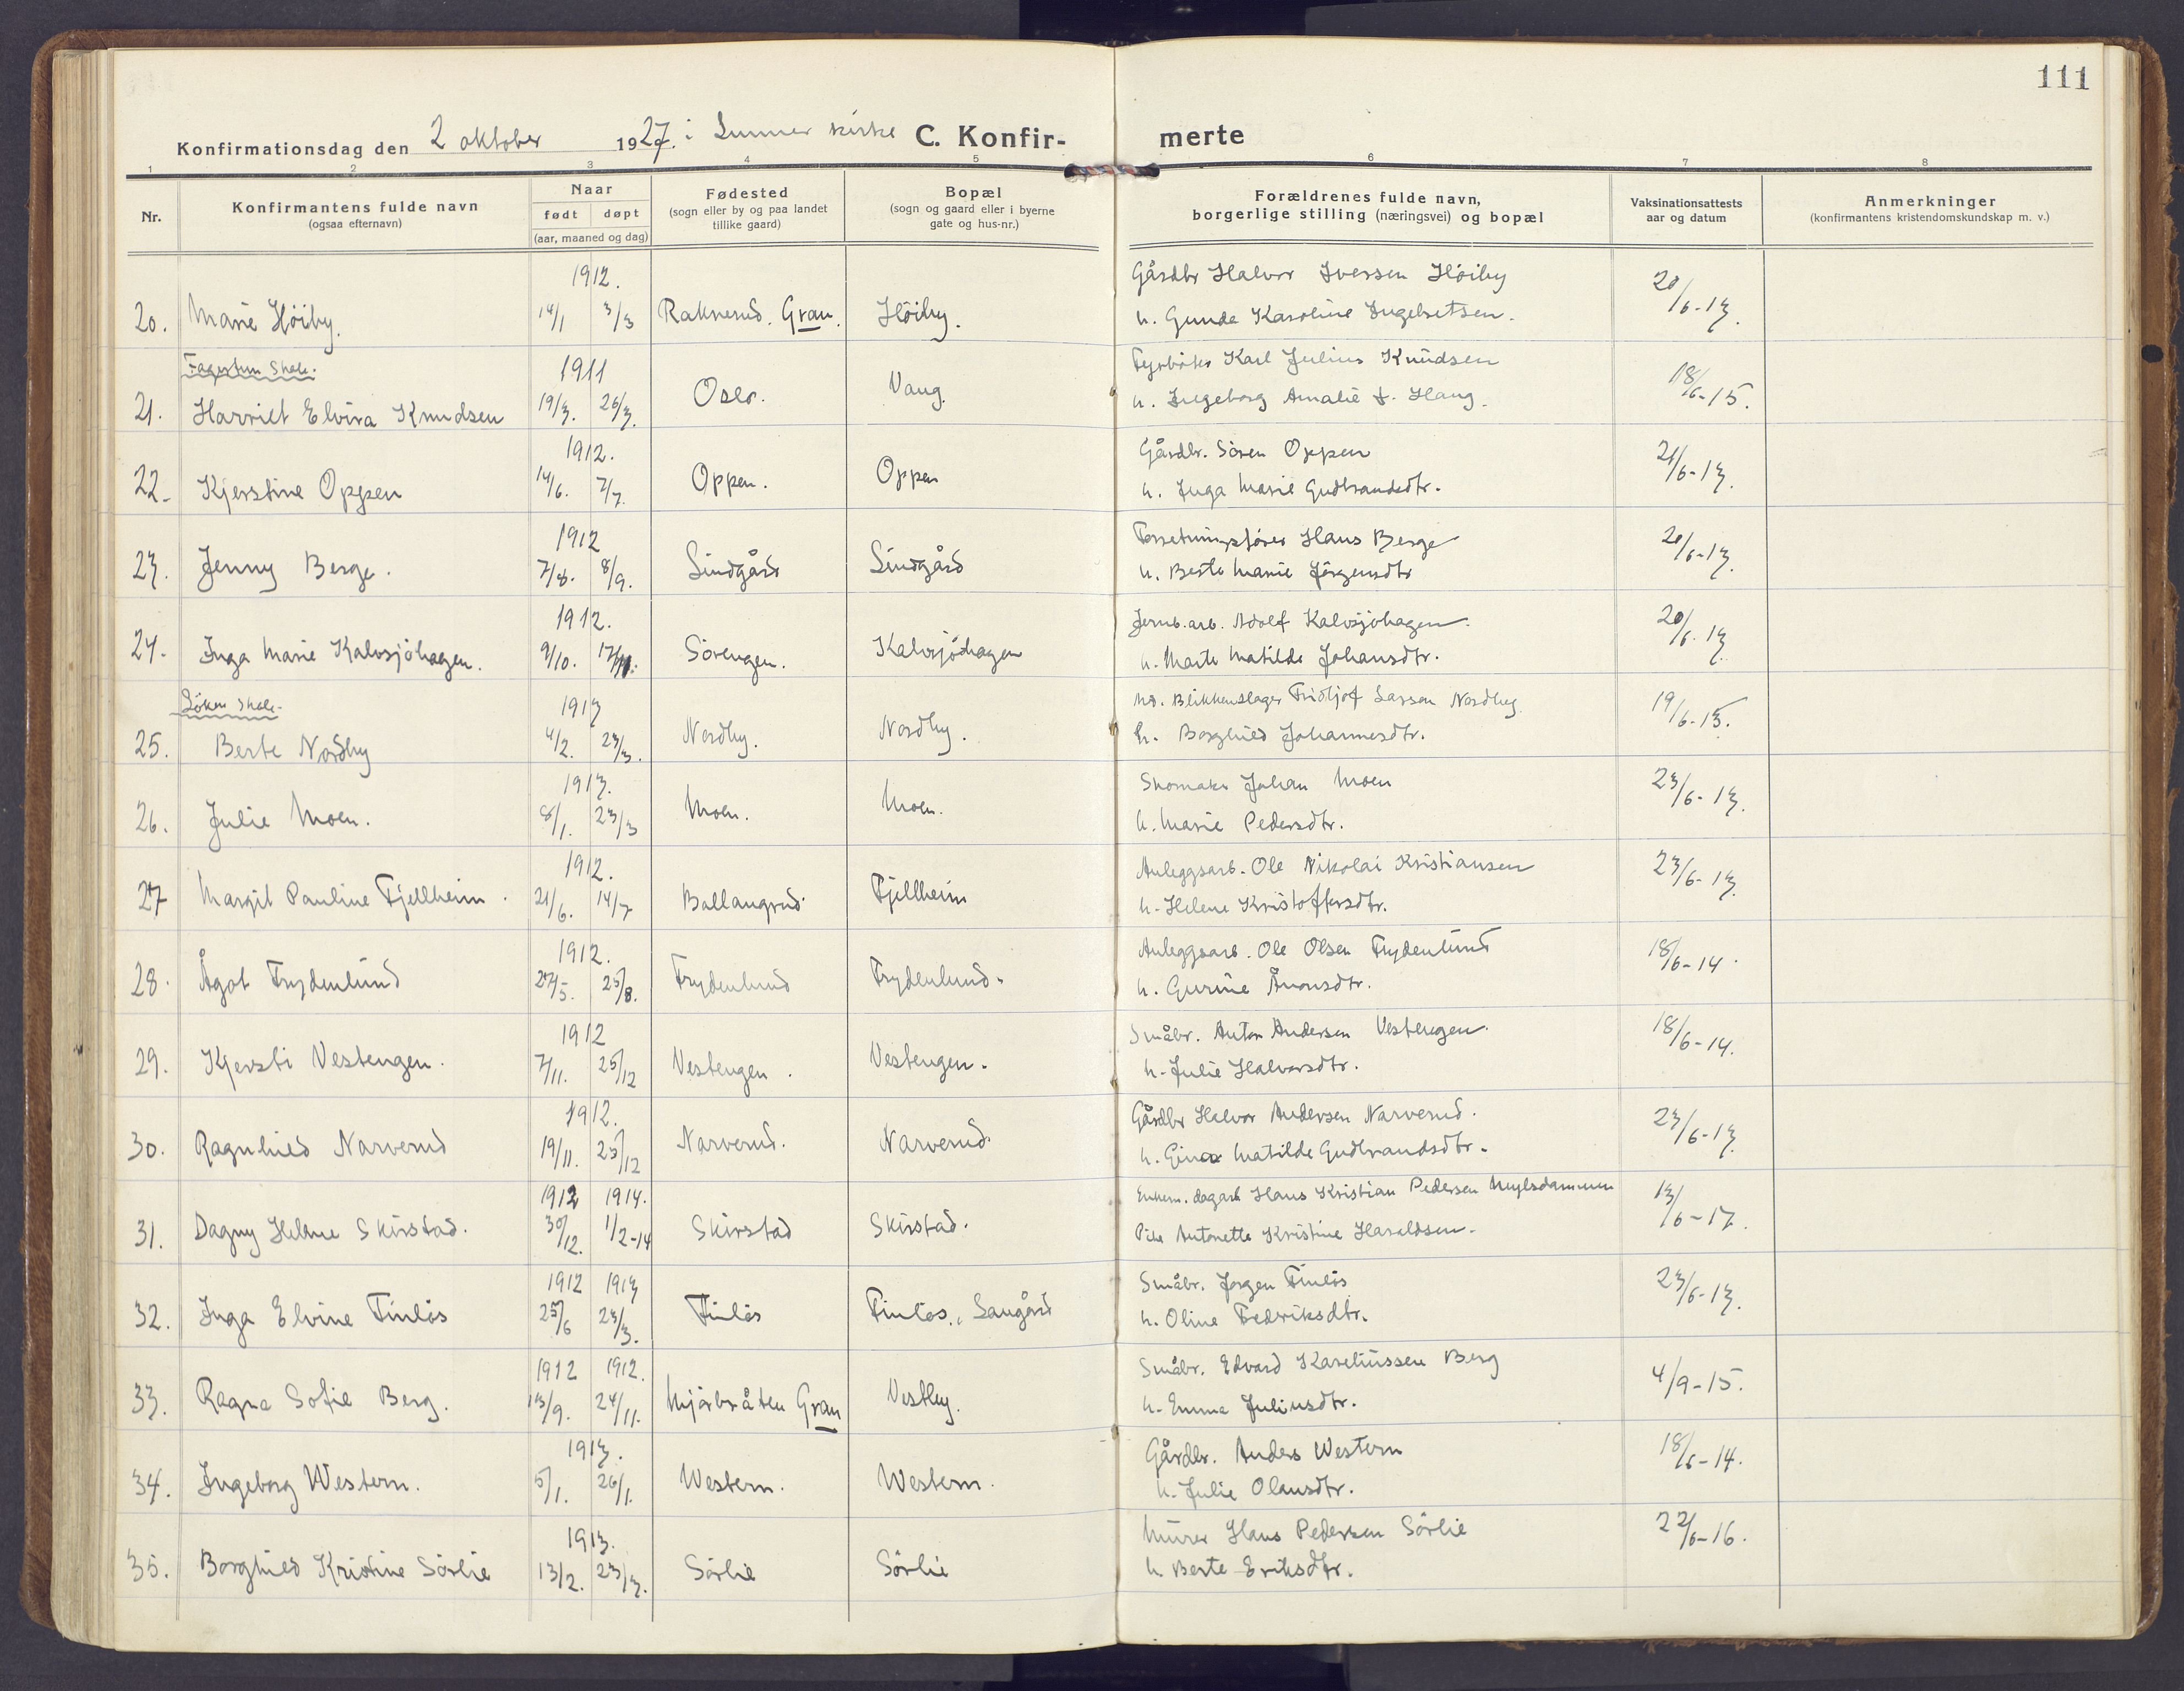 111
Konfirmationsdag den 2 oktober 1927. i Lunner kirke C. Konfir- merte
1 2 3 4 5 6 7 8
Nr.
Konfirmantens fulde navn
(ogsaa efternavn)
Naar
født døpt
(aar, maaned og dag)
Fødested
(sogn eller by og paa landet
tillike gaard)
Bopæl
(sogn og gaard eller i byerne
gate og hus-nr.)
Forældrenes fulde navn,
borgerlige stilling (næringsvei) og bopæl
Vaksinationsattests
aar og datum
Anmerkninger
(konfirmantens kristendomskundskap m. v.)
1912. Gårdbr Halvor Iversen Höiby
20. Marie Höiby. 14/1 3/3 Raknerud. Gran. Höiby. h. Gunda Karoline Ingebretsen. 20/6-13.
Fagertun Skole. 1911 Fyrböter Karl Julius Knudsen
21. Harriet Elvira Knudsen 19/3. 26/3. Oslo. Vang. h. Ingeborg Amalie f. Haug. 18/6-15.
1912. Gårdbr. Sören Oppen
22. Kjerstine Oppen 14/6. 7/7. Oppen. Oppen h. Inga Marie Gudbrandsdtr. 21/6-13.
1912 Forretningsförer Hans Berge
23. Jenny Berge. 7/8. 8/9. Lindgård Lindgård h. Berte Marie Jörgensdtr 20/6-13.
1912. Jernb.arb. Adolf Kalvsjöhagen.
24. Inga Marie Kalvsjöhagen. 9/10. 17/11. Sörengen. Kalvsjöhagen h. Marte Matilde Johansdtr. 20/6-13
Löken Skole. 1913 Blikkenslager Fridtjof Larsen Nordby.
25. Berte Nordby 4/2. 23/3. Nordby. Nordby. h. Borghild Johannesdtr. 19/6-15.
1913. Skomaker Johan Moen
26. Julie Moen. 8/1. 23/3 Moen. Moen. h. Marie Pedersdtr. 23/6-13.
1912. Anleggsarb. Ole Nikolai Kristiansen
27 Margit Pauline Fjellheim. 21/6. 14/7 Ballangrud Fjellheim h. Helene Kristoffersdtr. 23/6-13.
1912. Anleggsarb. Ole Olsen Frydenlund
28. Ågot Frydenlund 27/5. 25/8. Frydenlund Frydenlund. h. Gurine Åronsdtr. 18/6-14.
1912 Småbr. Anton Andersen Vestengen.
29. Kjersti Vestengen. 7/11. 25/12 Vestengen. Vestengen. h. Julie Halvorsdtr. 18/6-14.
1912. Gårdbr Halvor Andersen Narverud.
30. Ragnhild Narverud 19/11. 25/12 Narverud. Narverud. h. Gina Matilde Gudbrandsdtr. 23/6-13.
1912 1914. Enkem. dagarb Hans Kristian Pedersen
31. Dagny Helene Skirstad. 30/12. 1/2-14 Skirstad Skirstad. Pike Antonette Kristine Haraldsen. 13/6-17.
1912 1913 Småbr. Jørgen Finlös
32. Inga Elvine Finlös 25/6 23/3. Finlös Finlös., Saugård h. Oline Fredriksdtr. 23/6-13.
1912 1912. Småbr. Edvard Kareliussen Berg
33. Ragna Sofie Berg. 13/9. 24/11. Mjörbråten Gran Vestby. h. Emma Juliusdtr. 4/9-15.
1913. Gårdbr. Anders Western
34. Ingeborg Western. 5/1. 26/1. Western. Western. h. Julie Olausdtr. 18/6-14.
1913. Murer Hans Pedersen Sörlie
35. Borghild Kristine Sörlie 13/2. 23/3. Sörlie Sörlie h. Berte Eriksdtr. 22/6-16.